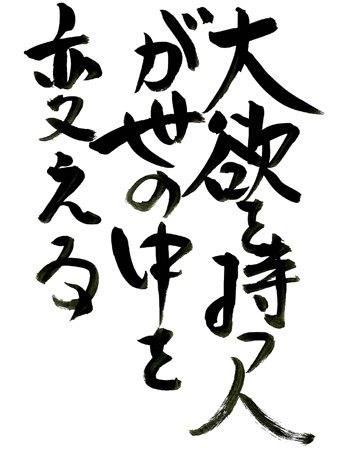 大欲を持つ人
が世の中を
変える